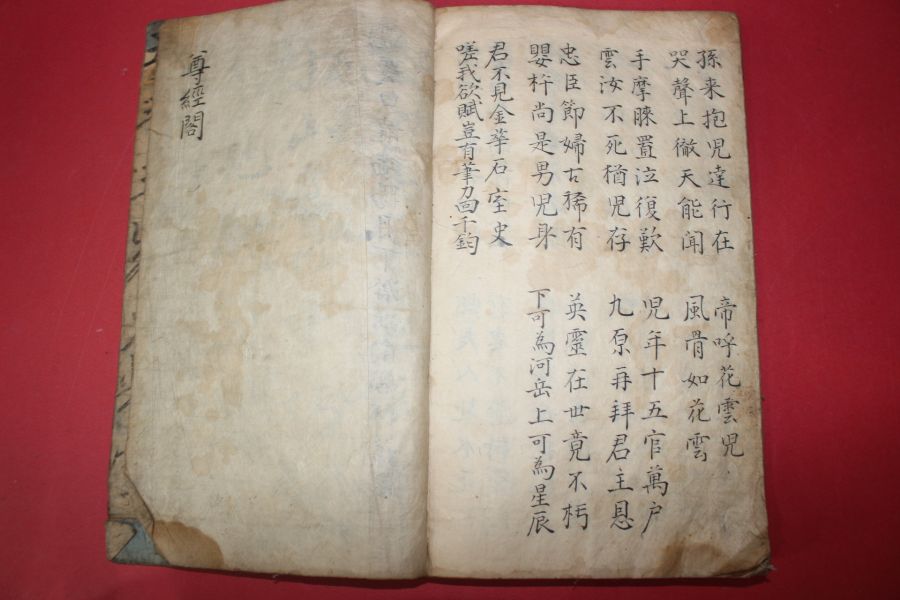 孫来抱児達行在 帝呼花雲児
哭聲上徹天能聞 風骨如花雲
手摩膝置泣復歎 児年十五官萬户
雲汝不死猶児存 九原再拜君主恩
忠臣節婦古稀有 英靈在世竟不朽
嬰杵尚是男児身 下可為河岳上可為星辰
君不見金華石室史
嗟我欲賦豈有筆力回千鈞
尊經閣